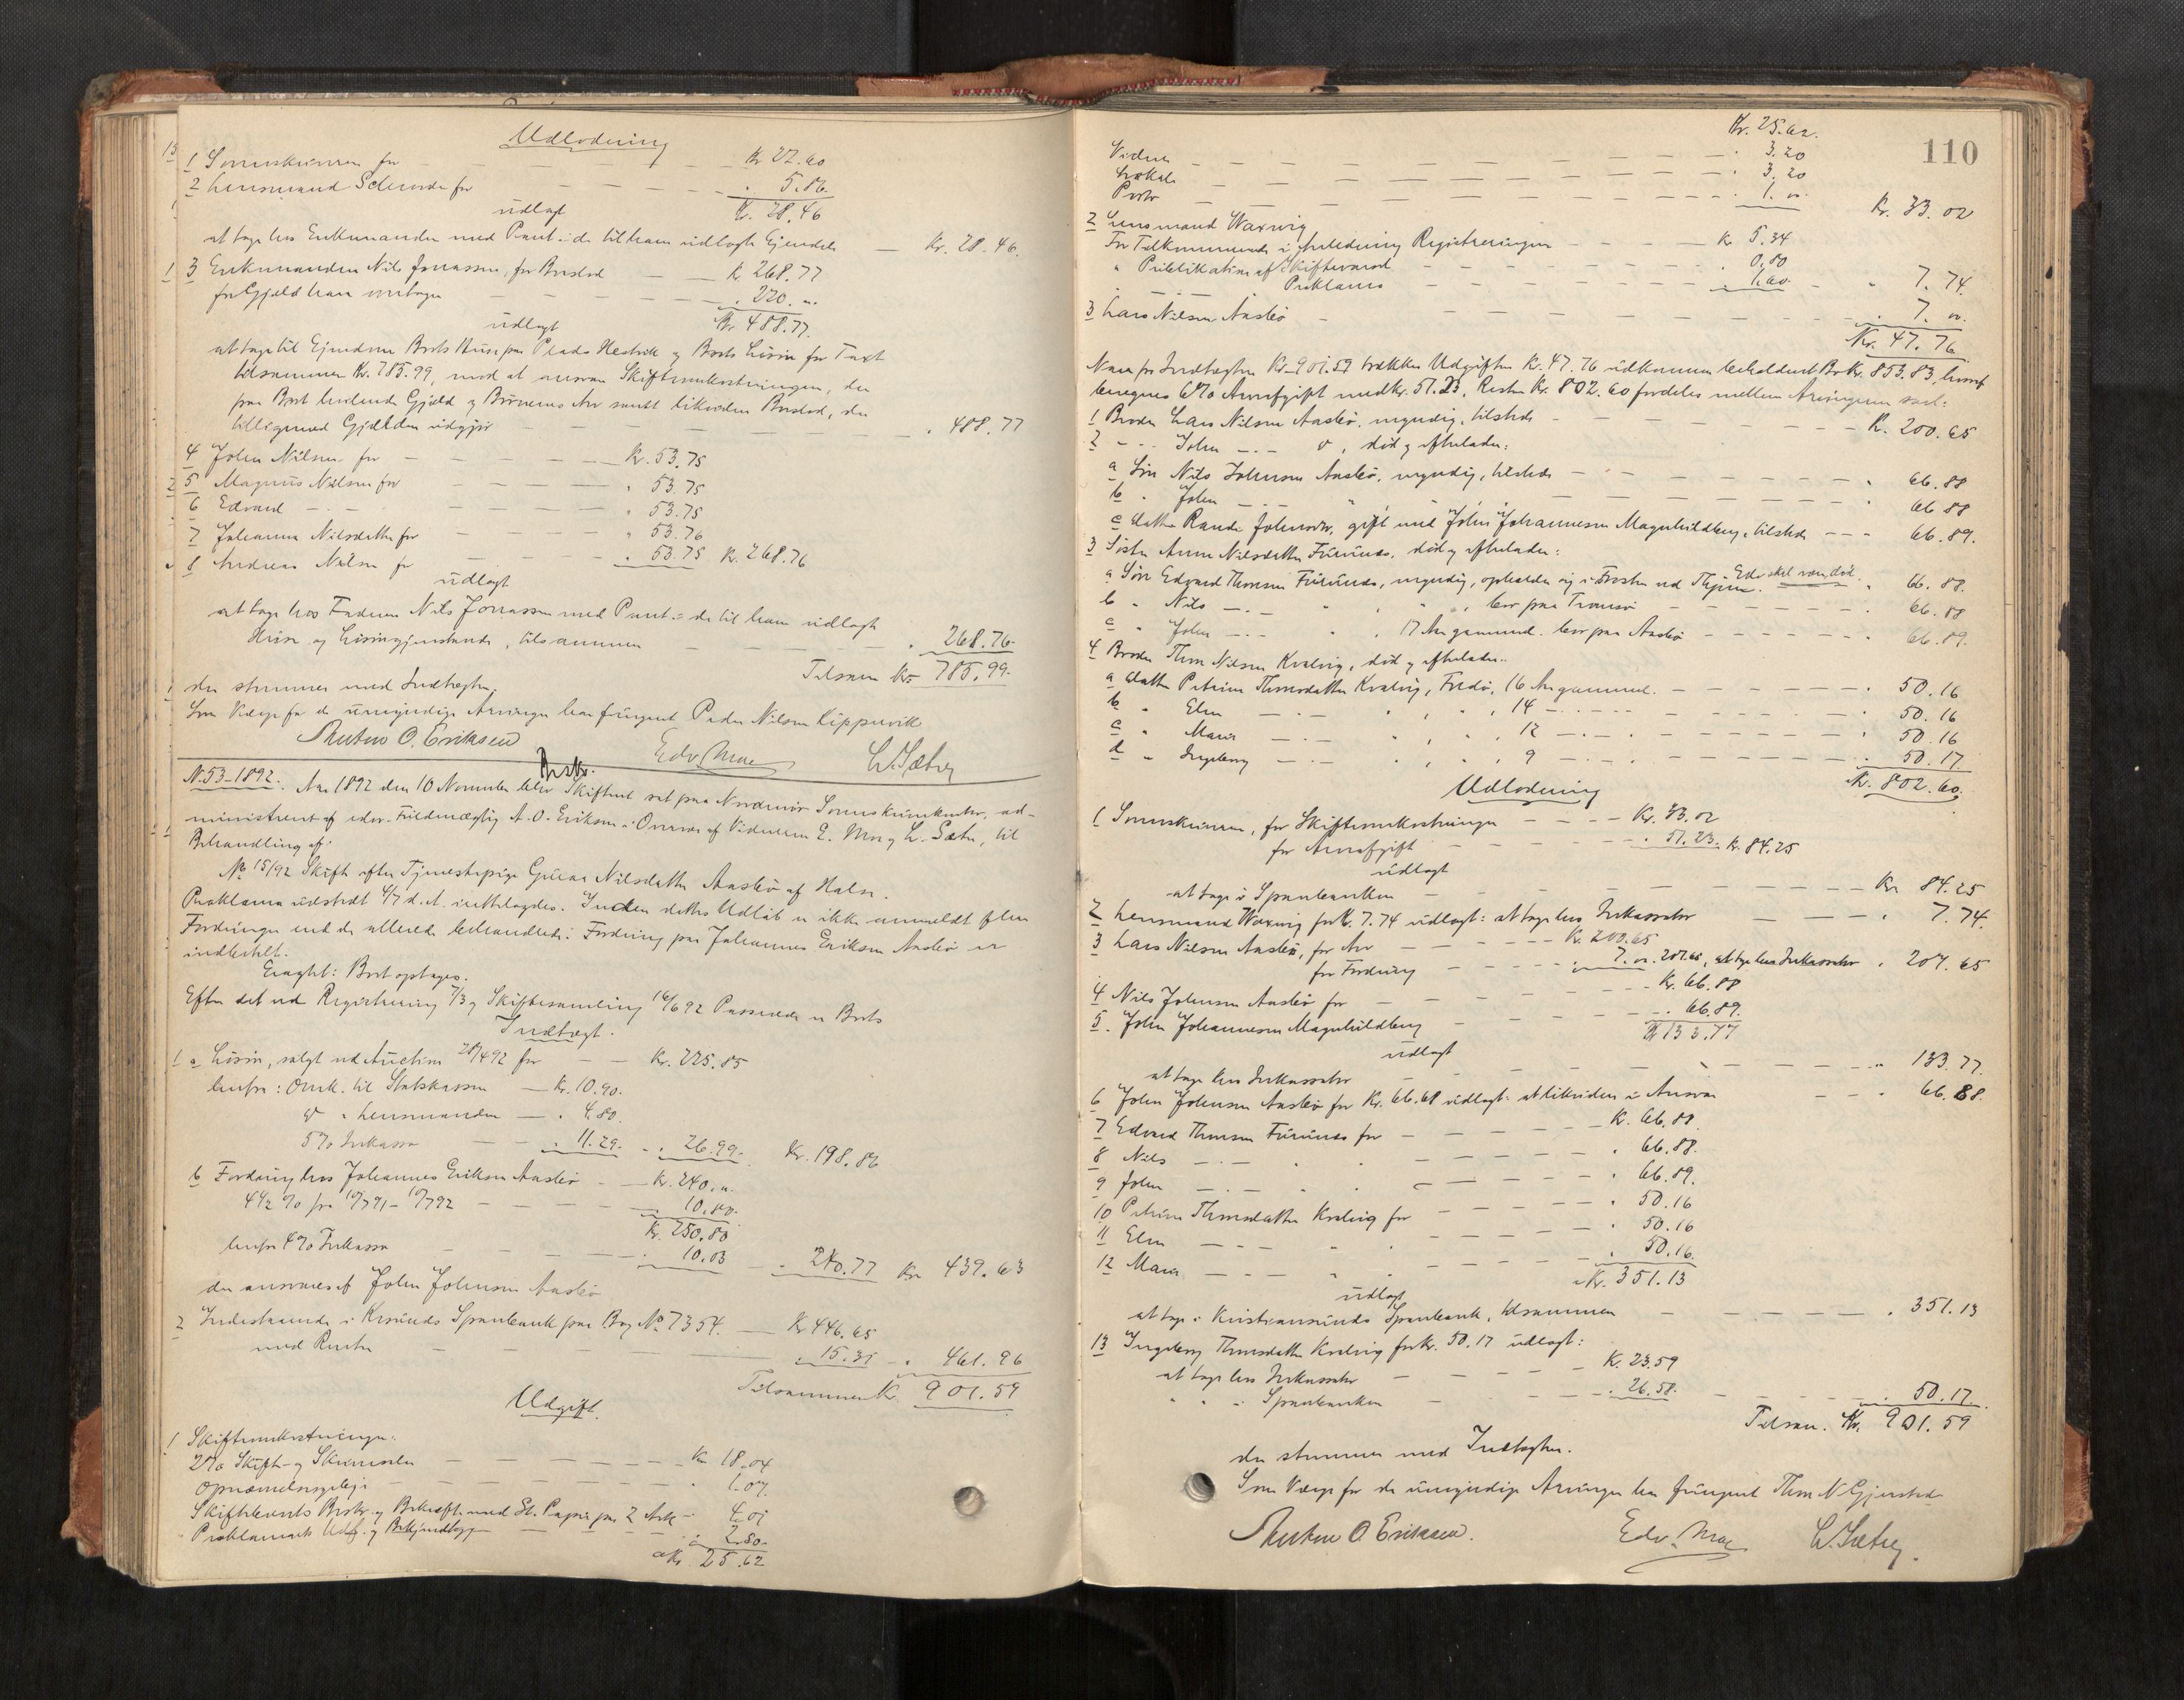 Udlodning
1 Sorenskriveren for — Kr. 22.60
2 Lensmand Schevde for — " 5.86
udlagt Kr. 28.46
at tage hos Enkemanden med Pant i de til ham udlagte Eiendele — Kr. 28.46.
3 Enkemanden Nils Jonassen, for Boslod — Kr. 268.77
for Gjæld han overtager — " 220. "
udlagt Kr. 488.77.
at tage til Eiendom Boets Huse paa Pladsen og Boets Løsøre for Taxt
tilsammen Kr. 785.99, mod at ansvare Skifteomkostningerne, den
paa Boet hvilende Gjæld og Børnenes Arv samt likvidere Boslod, der
tilligemed Gjælden udgjør — " 488.77
4 John Nilsen for — Kr. 53.75
5 Magnus Nilsen for — " 53.75
6 Edvard — " — " 53.75
7 Johanna Nilsdatter for — " 53.76
8 Andreas Nilsen for — " 53.75 Kr. 268.76
udlagt
at tage hos Faderen Nils Jonassen med Pant i de til ham udlagte
Huse og Løsøregjenstande, tilsammen — " 268.76
Tilsammen Kr. 785.99.
der stemmer med Indtægten.
Som Værge for de umyndige Arvinger har fungeret Peder Nilsen Lippevik
Anton O. Eriksen Edv. Moe L. Sæter
N. 53-1892. Aar 1892 den 10 November blev Skifteret sat paa Nordmør Sorenskriverkontor, ad-
ministreret af edsv. Fuldmægtig A. O. Eriksen i Overvær af Vidnerne E. Moe og L. Sæter, til
Behandling af:
No 15/92 Skifte efter Tjenestepige Guru Nilsdatter Aasbø af Halse.
Proklama udstedt 4/7 d. A. irettelagdes. Inden dettes Udløb er ikke anmeldt flere
Fordringer end de allerede behandlede. Fordring paa Johannes Eriksen Aasbø er
indbetalt.
Eragtet: Boet optages.
Efter det ved Registrering 7/3 og Skiftesamling 16/6 92 Passerede er Boets
Indtægt.
1 a Løsøre, solgt ved Auction 28/4 92 for — Kr. 225.85
herfra: Omk. til Statskassen — Kr. 10.90.
do " Lensmanden — " 4.80.
5% Inkasso — " 11.29. — " 26.99. Kr. 198.86
b Fordring hos Johannes Eriksen Aasbø — Kr. 240. "
4 1/2 % fra 10/7 91 – 10/7 92 — 10.80.
Kr. 250.80
herfra 4% Inkasso — " 10.03 — " 240.77 Kr. 439.63
der ansvares af John Johnsen Aasbø
2 Indestaaende i Krsunds Sparebank paa Bog No 7354. — Kr. 446.65
med Renter — " 15.31 — " 461.96
Tilsammen Kr. 901.59
Udgift.
1 Skifteomkostninger:
2% Skifte- og Skriverløn — Kr. 18.04
Opnævnelsesgebyr — " 1.07.
Skiftebrevets Beskr. og Bekræft. med St. Papir paa 2 Ark —
Proklamaets Udf. og Bekjendtgj. — " 2.80.
Kr. 25.62
110
Kr. 25.62.
Vidner — " 3.20
Lokale — " 3.20
Porto — " 1. " Kr. 33.02
2 Lensmand Waxvig
For Tilkommende i Anledning Registreringen — Kr. 5.34
" Publikation af Skiftevarsel — " 0.80
" — " Proklama — " 1.60 — " 7.74.
3 Lars Nilsen Aasbø — " 7. "
Kr. 47.76
Naar fra Indtægten Kr. 901.59 trækkes Udgiften Kr. 47.76 udkommer beholdent Bo Kr. 853.83, hvoraf
beregnes 6% Arveafgift med Kr. 51.23. Resten Kr. 802.60 fordeles mellem Arvingerne saal:
1 Broder Lars Nilsen Aasbø, myndig, tilstede — Kr. 200.65
2 — " John — " — do, død og efterlader:
a Søn Nils Johnsen Aasbø, myndig, tilstede — " 66.88
b " John — " — " 66.88
c Datter Randi Johnsdtr, gift med John Johannesen Magnhildberg, tilstede — 66.89.
3 Søster Anne Nilsdatter Furunes, død og efterlader:
Edv. skal være død.
a Søn Edvard Thomsen Furunes, myndig, opholder sig i Frosten ved Thjem. " 66.88.
b " Nils — " — " bor paa Tromsø — " 66.88
c " John — " — " 17 Aar gammel. bor paa Aasbø — 66.89.
4 Broder Thom Nilsen Kvalvig, død og efterlader:
a Datter Petrine Thomsdatter Kvalvig, Fredø, 16 Aar gammel. — " 50.16
b " Elen — " — 14 — " 50.16
c " Maria — " — 12 — " 50.16
d " Ingeborg — " — 9 — " 50.17
Kr. 802.60.
Udlodning
1 Sorenskriveren, for Skifteomkostninger — Kr. 33.02
for Arveafgift — " 51.23. Kr. 84.25
udlagt
at tage i Sparebanken — Kr. 84.25
2 Lensmand Waxvig for Kr. 7.74 udlagt: at tage hos Inkassator — " 7.74.
3 Lars Nilsen Aasbø, for Arv — Kr. 200.65
for Fordring — " 7. " 207.65, at tage hos Inkassator " 207.65
4 Nils Johnsen Aasbø for — Kr. 66.88
5. John Johannesen Magnhildberg — " 66.89.
Kr. 133.77
udlagt
at tage hos Inkassator — " 133.77.
6 John Johnsen Aasbø for Kr. 66.88 udlagt: at likvidere i Ansvar — " 66.88.
7 Edvard Thomsen Furunes for — Kr. 66.88.
8 Nils — " — " 66.88.
9 John — " — " 66.89.
10 Petrine Thomsdatter Kvalvig for — " 50.16
11 Elen — " — " 50.16
12 Maria — " — " 50.16.
Kr. 351.13
udlagt
at tage i Kristiansunds Sparebank, tilsammen — " 351.13
13 Ingeborg Thomsdatter Kvalvig for Kr. 50.17 udlagt:
at tage hos Inkassator — Kr. 23.59
" " i Sparebanken — " 26.58. — " 50.17.
Tilsam. Kr. 901.59
der stemmer med Indtægten.
Som Værge for de umyndige Arvinger har fungeret Thom N. Gjersted
Anton O. Eriksen. Edv. Moe L. Sæter.